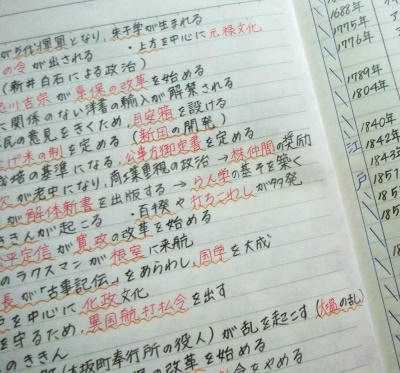 が5代将軍となり、朱子学が生まれる
の令が出される ・上方を中心に元禄文化
(新井白石による政治)
川吉宗が享保の改革を始める
に関係のない洋書の輸入が解禁される
民の意見をきくため目安箱を設ける
上げ米の制を定める (新田の開発)
裁培の基準になる、公事方御定書を定める
次が老中になり、商業重視の政治 → 株仲間の奨励
が解体新書を出版する → らん学の基そを築く
ききんが起こる ・百揆や打ちこわしが多発
平定信が寛政の改革を始める
のラクスマンが根室に来航
長が「古事記伝」をあらわし、国学を大成
を中心に化政文化
を守るため、異国船打払令を出す
のききん
(大坂町奉行所の役人)が乱を起こす (大塩の乱)
の改革を始める
令をやめる
1688年
1775年
1776年
1789年
1804年
1840年
1842年
1843年
江戸